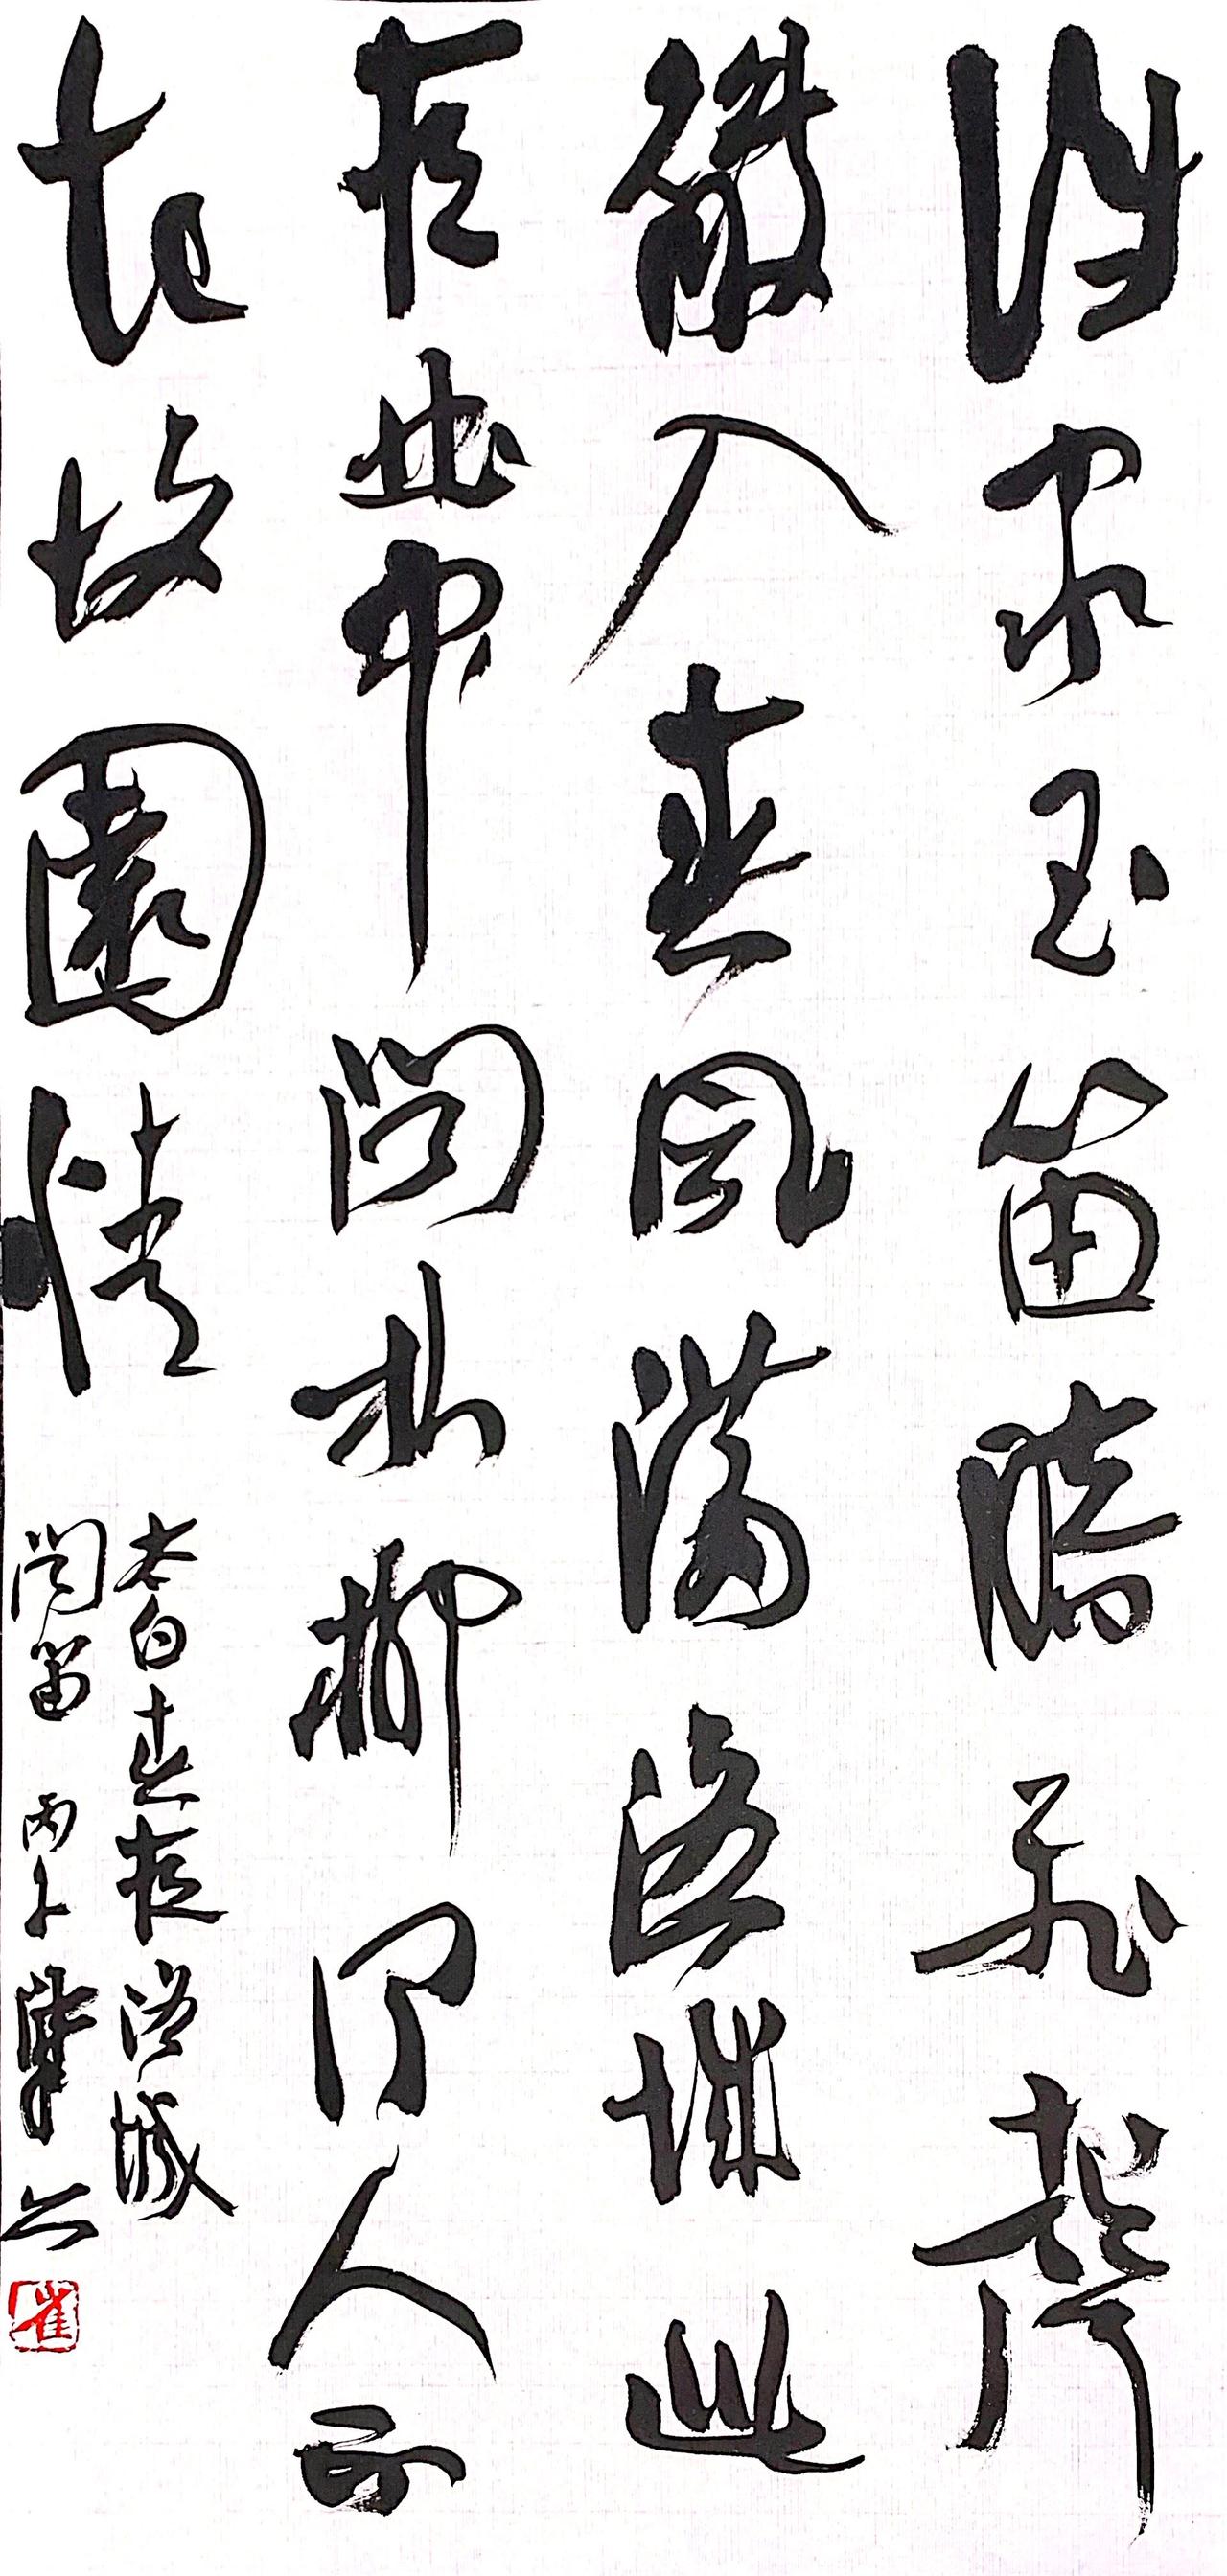 誰家玉笛暗飛聲
散入春風滿洛城此
夜曲中聞折柳何人不
起故園情
太白春夜洛城
聞笛 丙午
崔